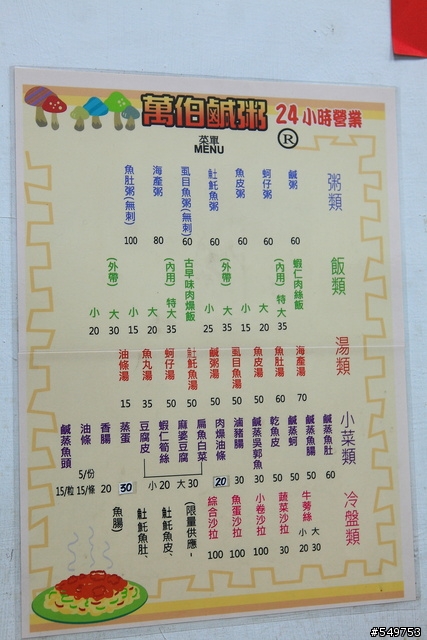 萬伯鹹粥 24小時營業
菜單
MENU
®
粥類
鹹粥 60
蚵仔粥 60
魚皮粥 60
𩵚魠魚粥 60
虱目魚粥(無刺) 60
海產粥 80
魚肚粥(無刺) 100
飯類
蝦仁肉絲飯
(內用) 特大 35
大 20
小 15
(外帶) 大 35
小 25
古早味肉燥飯
(內用) 特大 35
大 20
小 15
(外帶) 大 30
小 20
湯類
海產湯 70
魚肚湯 60
魚皮湯 50
虱目魚湯 50
鹹粥湯 50
魚湯 50
蚵仔湯 50
魚丸湯 35
油條湯 15
小菜類
鹹蒸魚肚 60
鹹蒸魚腸 50
鹹蒸蚵 50
乾魚皮 50
鹹蒸吳郭魚 30
滷豬腸 30
肉燥油條 20
扁魚白菜
麻婆豆腐
蝦仁筍絲
豆腐皮
小20 大30
蒸蛋 30
香腸 20
油條 5/份 15/條
鹹蒸魚頭 15/粒
冷盤類
牛蒡絲 小 大
20 30
蔬菜沙拉 30
小卷沙拉 100
魚蛋沙拉 100
綜合沙拉 100
(限量供應-
魚皮、
魚肚、
魚腸)
#549753